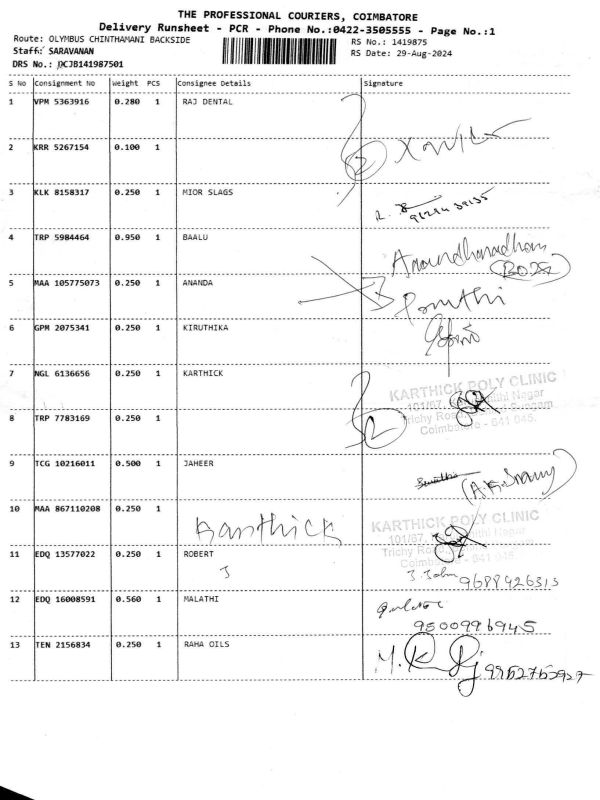 THE PROFESSIONAL COURIERS, COIMBATORE
Delivery Runsheet - PCR - Phone No.:0422-3505555 - Page No.:1
Route: OLYMBUS CHINTHAMANI BACKSIDE
RS No.: 1419875
Staff: SARAVANAN
RS Date: 29-Aug-2024
DRS No.: PCJB141987501
S No Consignment No Weight PCS Consignee Details Signature
1 VPM 5363916 0.280 1 RAJ DENTAL
2 KRR 5267154 0.100 1
3 KLK 8158317 0.250 1 MIOR SLAGS
4 TRP 5984464 0.950 1 BAALU
5 MAA 105775073 0.250 1 ANANDA
6 GPM 2075341 0.250 1 KIRUTHIKA
7 NGL 6136656 0.250 1 KARTHICK
KARTHICK POLY CLINIC
8 TRP 7783169 0.250 1
Coimbatore - 641 045.
9 TCG 10216011 0.500 1 JAHEER
10 MAA 867110208 0.250 1 Karthick
KARTHICK POLY CLINIC
11 EDQ 13577022 0.250 1 ROBERT
J. John 9688426313
12 EDQ 16008591 0.560 1 MALATHI
9500996945
13 TEN 2156834 0.250 1 RAHA OILS